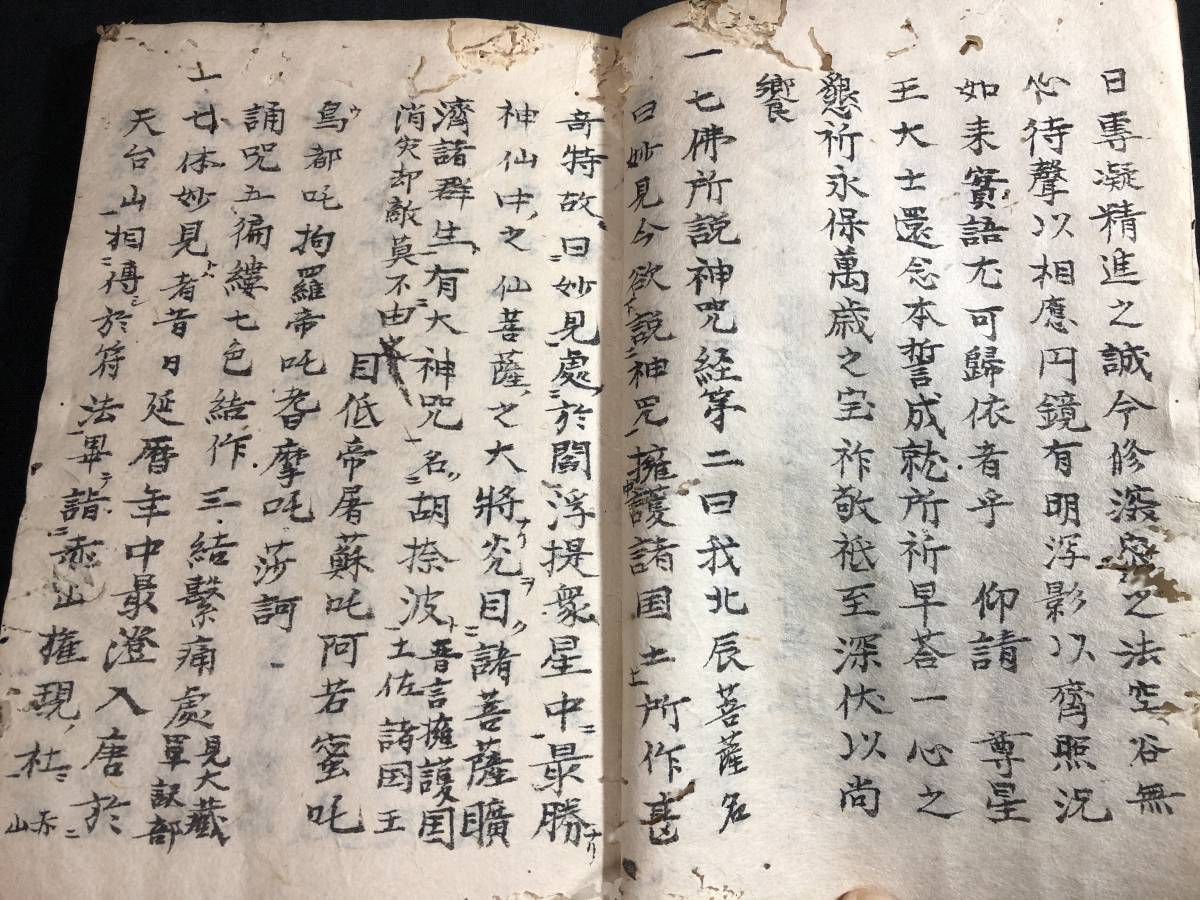 日専凝精進之誠今修深密之法空谷無
心待聲以相應円鏡有明浮影以齊照況
如来實語尤可歸依者乎 仰請 尊星
王大士還念本誓成就所祈早荅一心之
懇祈永保萬歳之宝祚敬祗至深伏以尚
饗
一七佛所説神咒経第二曰我北辰菩薩名
曰妙見今欲説神咒擁護諸国土所作甚
奇特故曰妙見處於閻浮提衆星中最勝
神仙中之仙菩薩之大將光目諸菩薩曠
濟諸群生有大神咒名胡捺波 晋言擁護国土佐諸国王
消灾却敵莫不由
目低帝屠蘇吒阿若蜜吒
烏都吒拘羅帝吒耆摩吒莎訶
誦咒五徧縷七色結作三結繫痛處 見大藏單訳部
一七体妙見者昔日延暦年中最澄入唐於
天台山相傳於符法畢詣赤山権現社 赤山